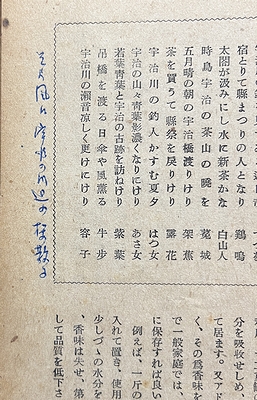 宿とりて縣まつりの人となり 鷄鳴
太閤が汲みにし水に新茶かな 白山人
時鳥宇治の茶山の曉を 城
五月晴の朝の宇治橋渡りけり 架蕉
茶を買うて縣祭を戻りけり 露花
宇治川の釣人かすむ夏夕 はつ女
宇治の山々青葉影濃くなりにけり あさ女
若葉青葉と宇治の古跡を訪ねけり 紫葉
吊橋を渡る日傘や風薫る 牛歩
宇治川の瀬音凉しく更けにけり 容子
そよ風に宇治の川辺の桜散る
分を吸收せしめ、
て居ます。又アド
く、その爲香味を
で一般家庭では、
に保存すれば良い
例えば、一斤の
入れて置き、使用
少しづゝの水分を
、香味は失せ、第
して品質を低下さ